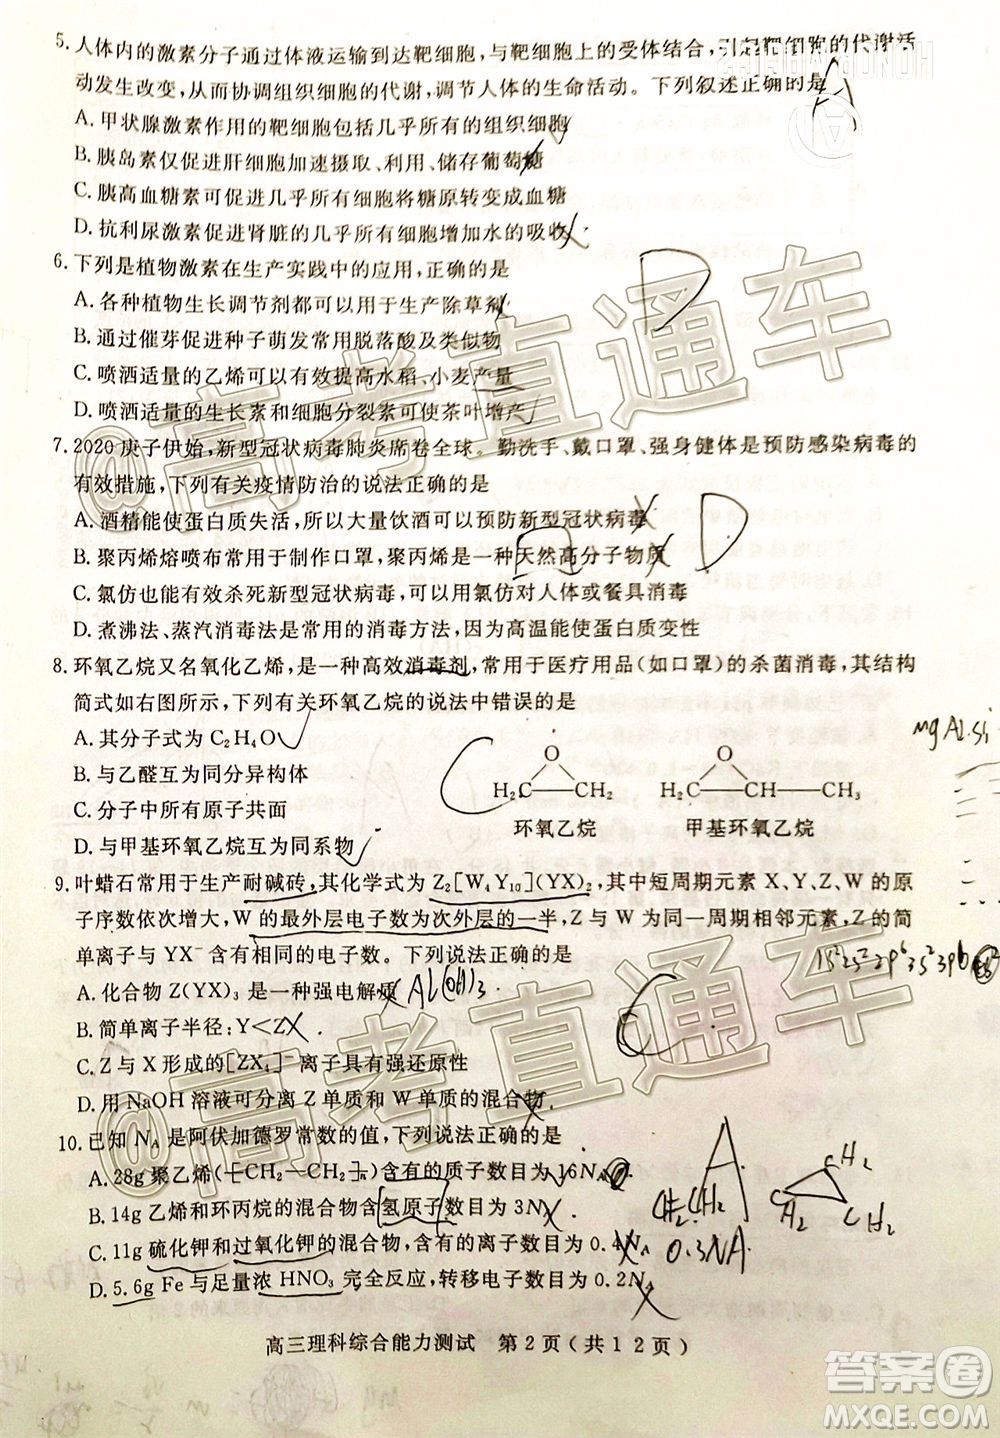 5. 人体内的激素分子通过体液运输到达靶细胞，与靶细胞上的受体结合，引起靶细胞的代谢活
动发生改变，从而协调组织细胞的代谢，调节人体的生命活动。下列叙述正确的是
A. 甲状腺激素作用的靶细胞包括几乎所有的组织细胞
B. 胰岛素仅促进肝细胞加速摄取、利用、储存葡萄糖
C. 胰高血糖素可促进几乎所有细胞将糖原转变成血糖
D. 抗利尿激素促进肾脏的几乎所有细胞增加水的吸收
6. 下列是植物激素在生产实践中的应用，正确的是
A. 各种植物生长调节剂都可以用于生产除草剂
B. 通过催芽促进种子萌发常用脱落酸及类似物
C. 喷洒适量的乙烯可以有效提高水稻、小麦产量
D. 喷洒适量的生长素和细胞分裂素可使茶叶增产
D
7. 2020庚子伊始，新型冠状病毒肺炎席卷全球。勤洗手、戴口罩、强身健体是预防感染病毒的
有效措施，下列有关疫情防治的说法正确的是
A. 酒精能使蛋白质失活，所以大量饮酒可以预防新型冠状病毒
B. 聚丙烯熔喷布常用于制作口罩，聚丙烯是一种天然高分子物质
C. 氯仿也能有效杀死新型冠状病毒，可以用氯仿对人体或餐具消毒
D. 煮沸法、蒸汽消毒法是常用的消毒方法，因为高温能使蛋白质变性
D
8. 环氧乙烷又名氧化乙烯，是一种高效消毒剂，常用于医疗用品（如口罩）的杀菌消毒，其结构
简式如右图所示，下列有关环氧乙烷的说法中错误的是
A. 其分子式为C₂H₄O
B. 与乙醛互为同分异构体
C. 分子中所有原子共面
D. 与甲基环氧乙烷互为同系物
C
O O
H₂C CH₂ H₂C CH CH₃
环氧乙烷 甲基环氧乙烷
9. 叶蜡石常用于生产耐碱砖，其化学式为Z₂[W₄Y₁₀](YX)₂，其中短周期元素X、Y、Z、W的原
子序数依次增大，W的最外层电子数为次外层的一半，Z与W为同一周期相邻元素，Z的简
单离子与YX⁻含有相同的电子数。下列说法正确的是
A. 化合物Z(YX)₃是一种强电解质 Al(OH)₃
B. 简单离子半径：Y<Z
C. Z与X形成的[ZX₄]⁻离子具有强还原性
D. 用NaOH溶液可分离Z单质和W单质的混合物
C
10. 已知Nᴀ是阿伏加德罗常数的值，下列说法正确的是
A. 28g聚乙烯(⁅CH₂—CH₂⁆ₙ)含有的质子数目为16Nᴀ
B. 14g乙烯和环丙烷的混合物含氢原子数目为3Nᴀ
C. 11g硫化钾和过氧化钾的混合物，含有的离子数目为0.4Nᴀ
D. 5.6gFe与足量浓HNO₃完全反应，转移电子数目为0.2Nᴀ
A
CH₂ CH₂
CH₂ CH₂ CH₂
0.3NA
高三理科综合能力测试 第2页（共12页）
@高考直通车
@高考直通车
答案圈
MXQE.COM